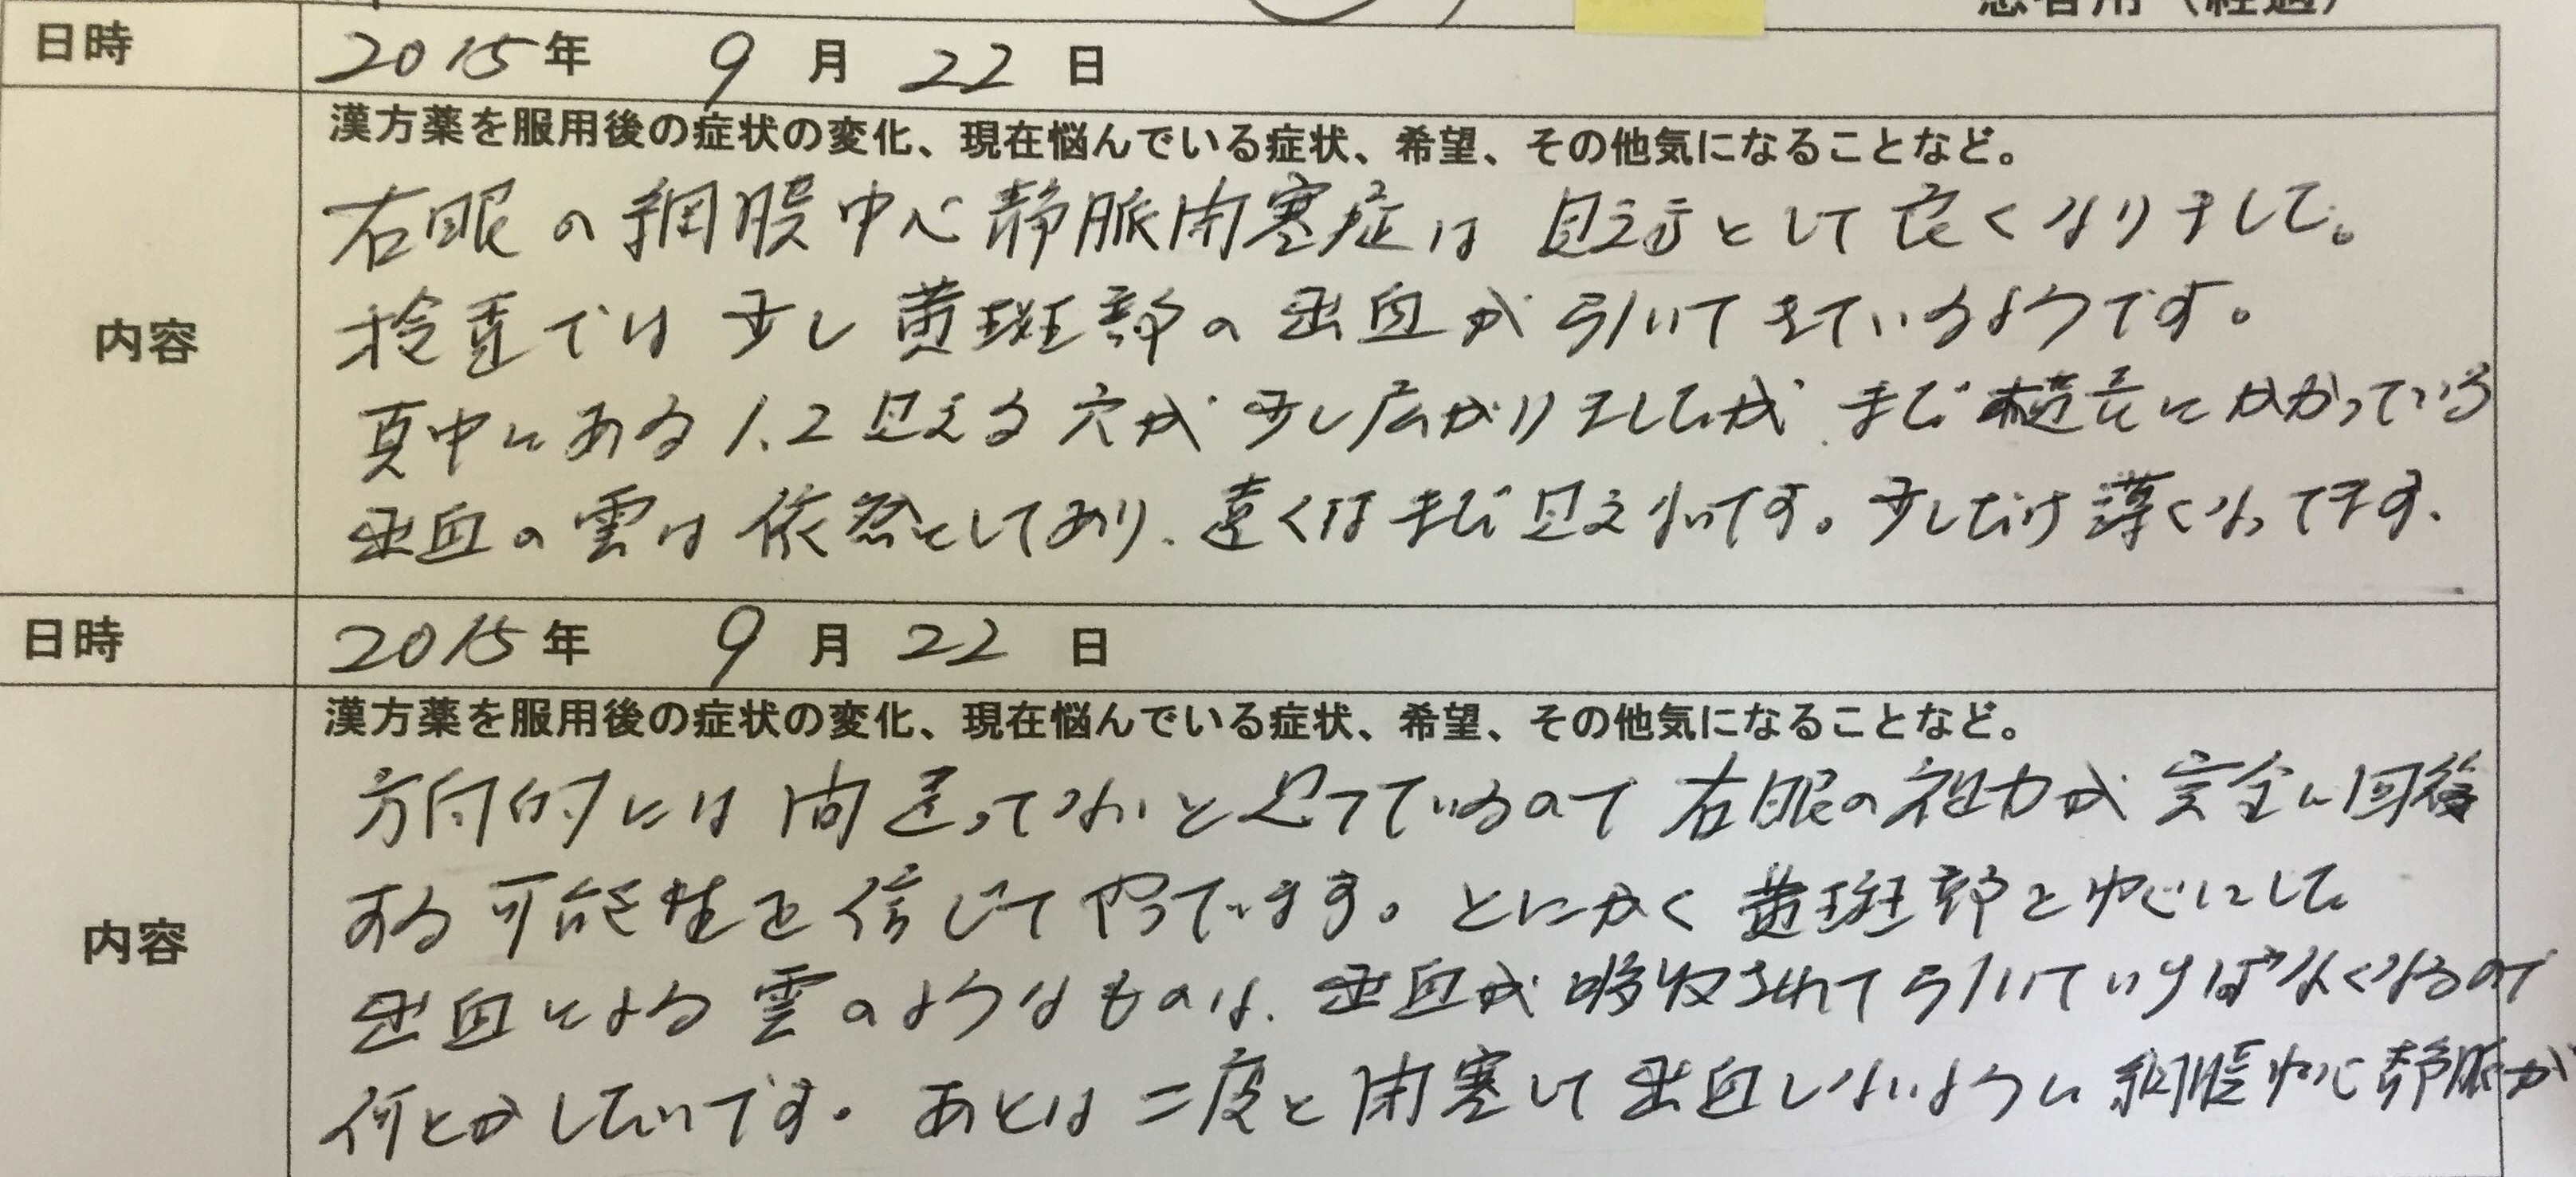 患者用（経過）
日時 2015年 9月 22日
漢方薬を服用後の症状の変化、現在悩んでいる症状、希望、その他気になることなど。
右眼の網膜中心静脈閉塞症は 見え方として良くなりました。
検査では 少し黄斑部の出血が引いてきているようです。
内容
真中にある1.2見える穴が少し広がりましたが まだ にかかっている
出血の雲は依然としてあり、遠くはまだ見えないです。少しだけ薄くなってます。
日時 2015年 9月 22日
漢方薬を服用後の症状の変化、現在悩んでいる症状、希望、その他気になることなど。
方向的には間違ってないと思っているので右眼の視力が完全に回復
する可能性を信じてやっています。とにかく黄斑部を中心にした
内容
出血による雲のようなものは、出血が吸収されて引いていけばなくなるので
何とかしたいです。あとは二度と閉塞して出血しないように網膜中心静脈が